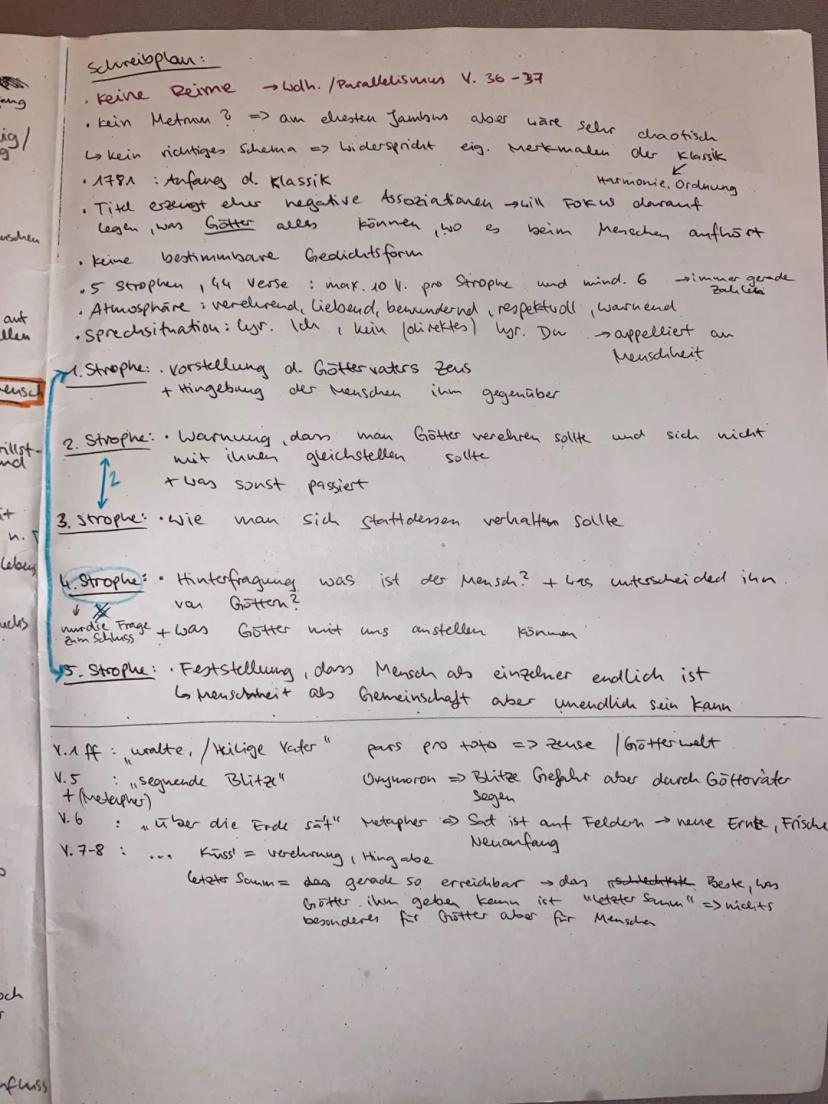 Schreibplan:
· Keine Reime → Wdh. / Parallelismus V. 36-37
· kein Metrum? => am ehesten Jambus aber wäre sehr chaotisch
↳ kein richtiges Schema => widerspricht eig. Merkmalen der Klassik
Harmonie, Ordnung
· 1781 : Anfang d. Klassik
· Titel erzeugt eher negative Assoziationen → will Fokus darauf
legen, was Götter alles können, wo es beim Menschen aufhört
· keine bestimmbare Gedichtsform
· 5 Strophen, 44 Verse : max. 10 V. pro Strophe und mind. 6 → immer gerade
Zahlen
· Atmosphäre : verehrend, liebend, bewundernd, respektvoll, warnend
· Sprechsituation : lyr. Ich, kein (direktes) lyr. Du → appelliert an
Menschheit
1. Strophe: · Vorstellung d. Göttervaters Zeus
+ Hingebung der Menschen ihm gegenüber
2. Strophe: · Warnung, dass man Götter verehren sollte und sich nicht
mit ihnen gleichstellen sollte
+ was sonst passiert
2
3. Strophe: · wie man sich stattdessen verhalten sollte
4. Strophe: · Hinterfragung was ist der Mensch? + was unterscheided ihn
von Göttern?
nur die Frage
zum Schluss
+ was Götter mit uns anstellen können
5. Strophe: · Feststellung, dass Mensch als einzelner endlich ist
↳ Menschheit als Gemeinschaft aber unendlich sein kann
V. 1 ff : „uralte, / Heilige Vater" pars pro toto => Zeuse / Götterwelt
V. 5 : „segnende Blitze" Oxymoron => Blitze Gefahr aber durch Götterväter
+ (Metapher) Segen
V. 6 : „über die Erde sät" Metapher => Sat ist auf Feldern → neue Ernte, Frische
Neuanfang
V. 7-8 : ... Küss' = verehrung, Hingabe
letzter Saum = das gerade so erreichbar → das schlechteste Beste, was
Götter ihm geben kann ist "letzter Saum" => nichts
besonderes für Götter aber für Menschen
ig/
auf
ensch
illst-
nd
n.
Leben
och
nfluss